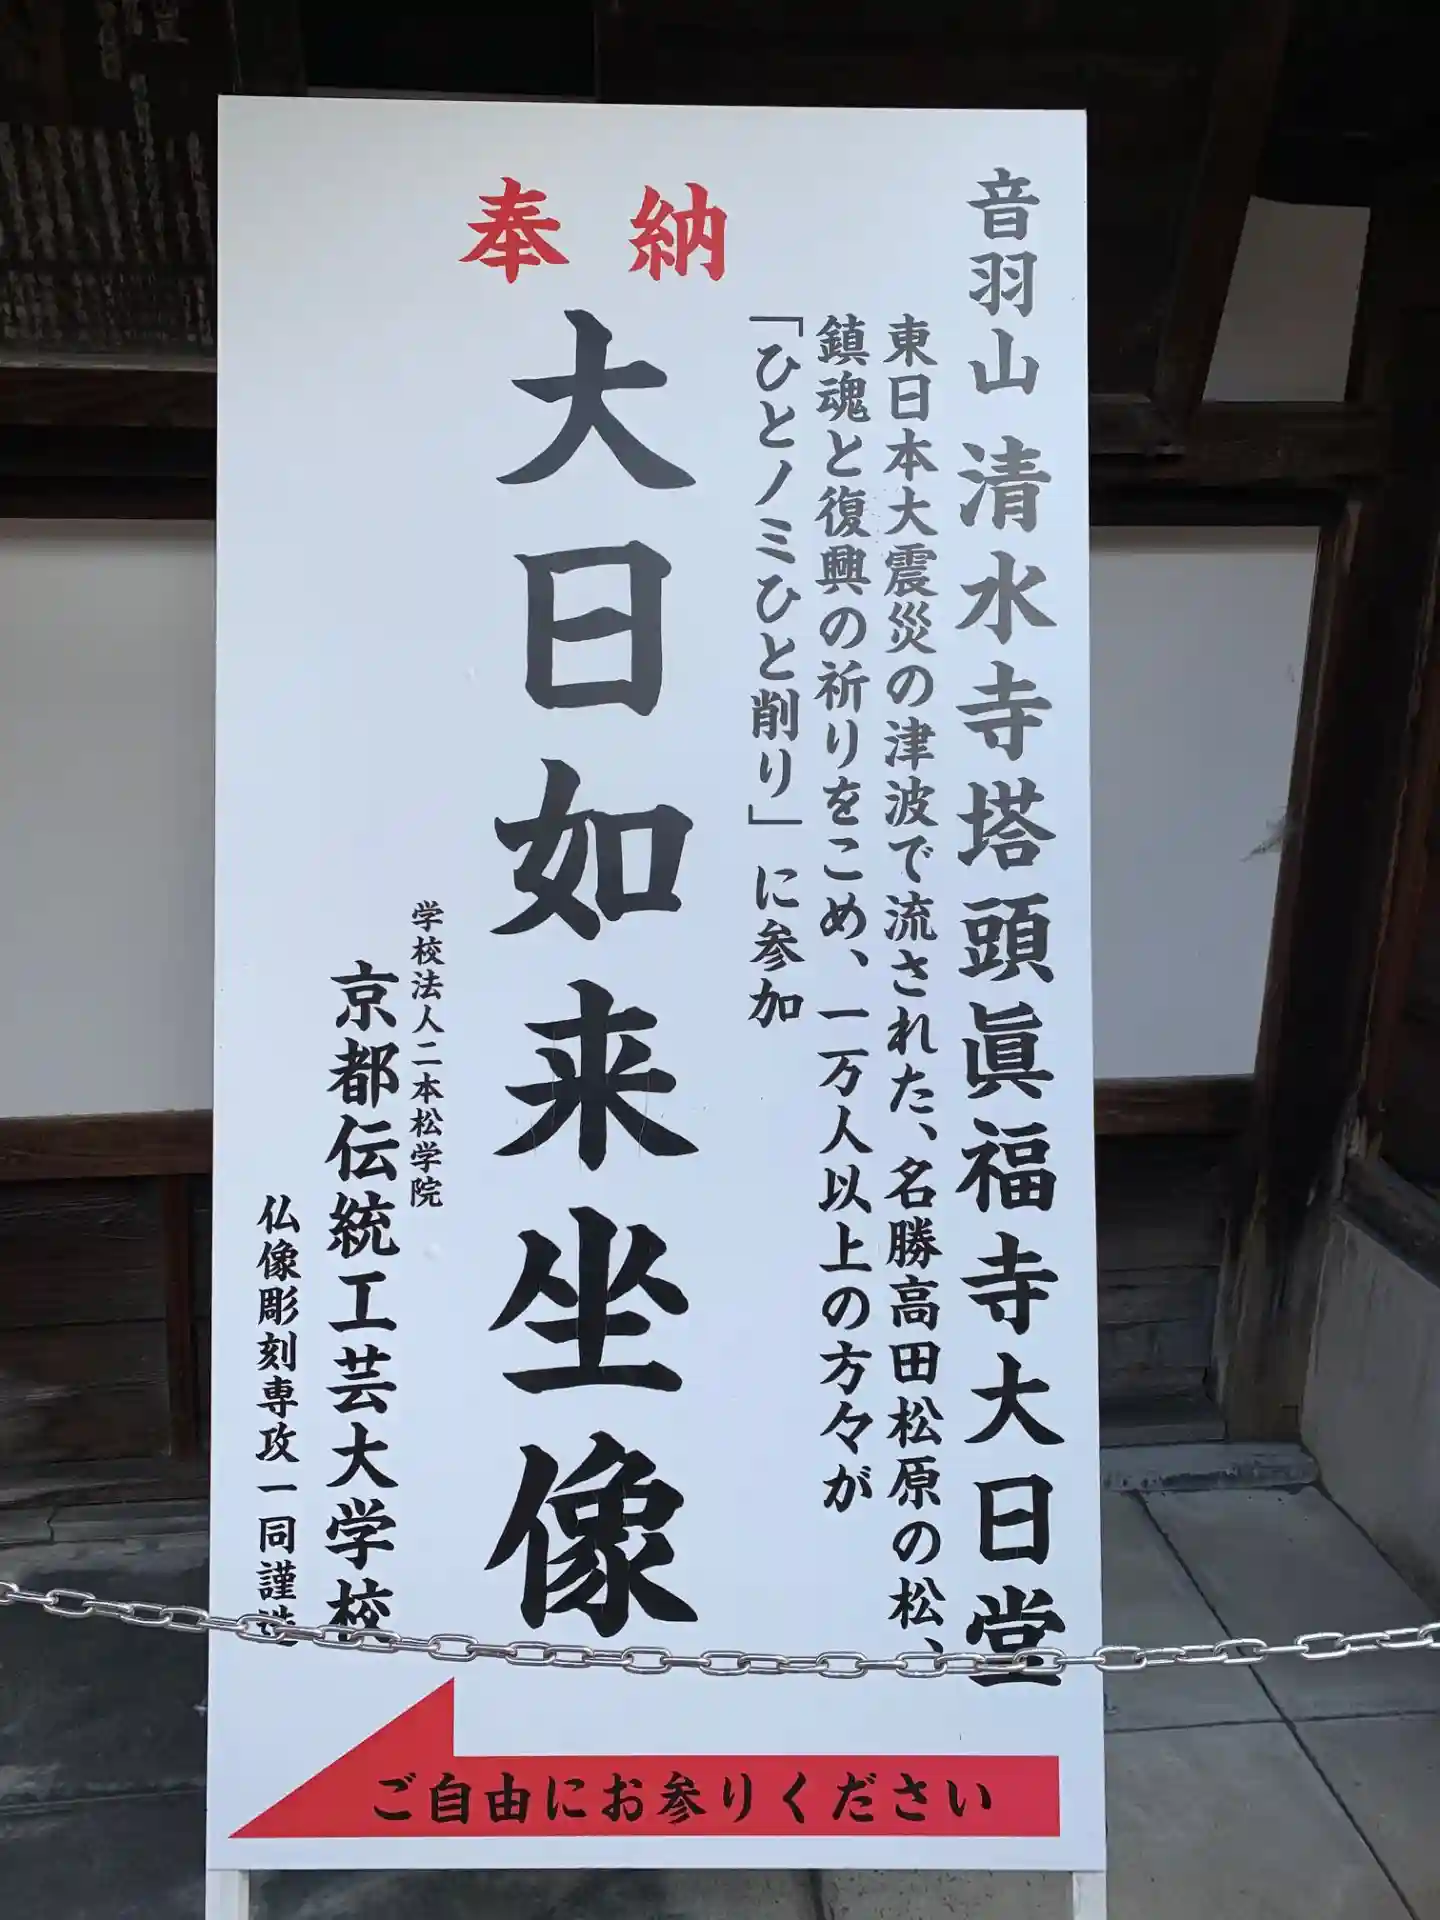 音羽山 清水寺塔頭眞福寺大日堂
東日本大震災の津波で流された、名勝高田松原の松、
鎮魂と復興の祈りをこめ、一万人以上の方々が
「ひとノミひと削り」に参加
奉納
大日如来坐像
学校法人二本松学院
京都伝統工芸大学校
仏像彫刻専攻一同謹造
ご自由にお参りください